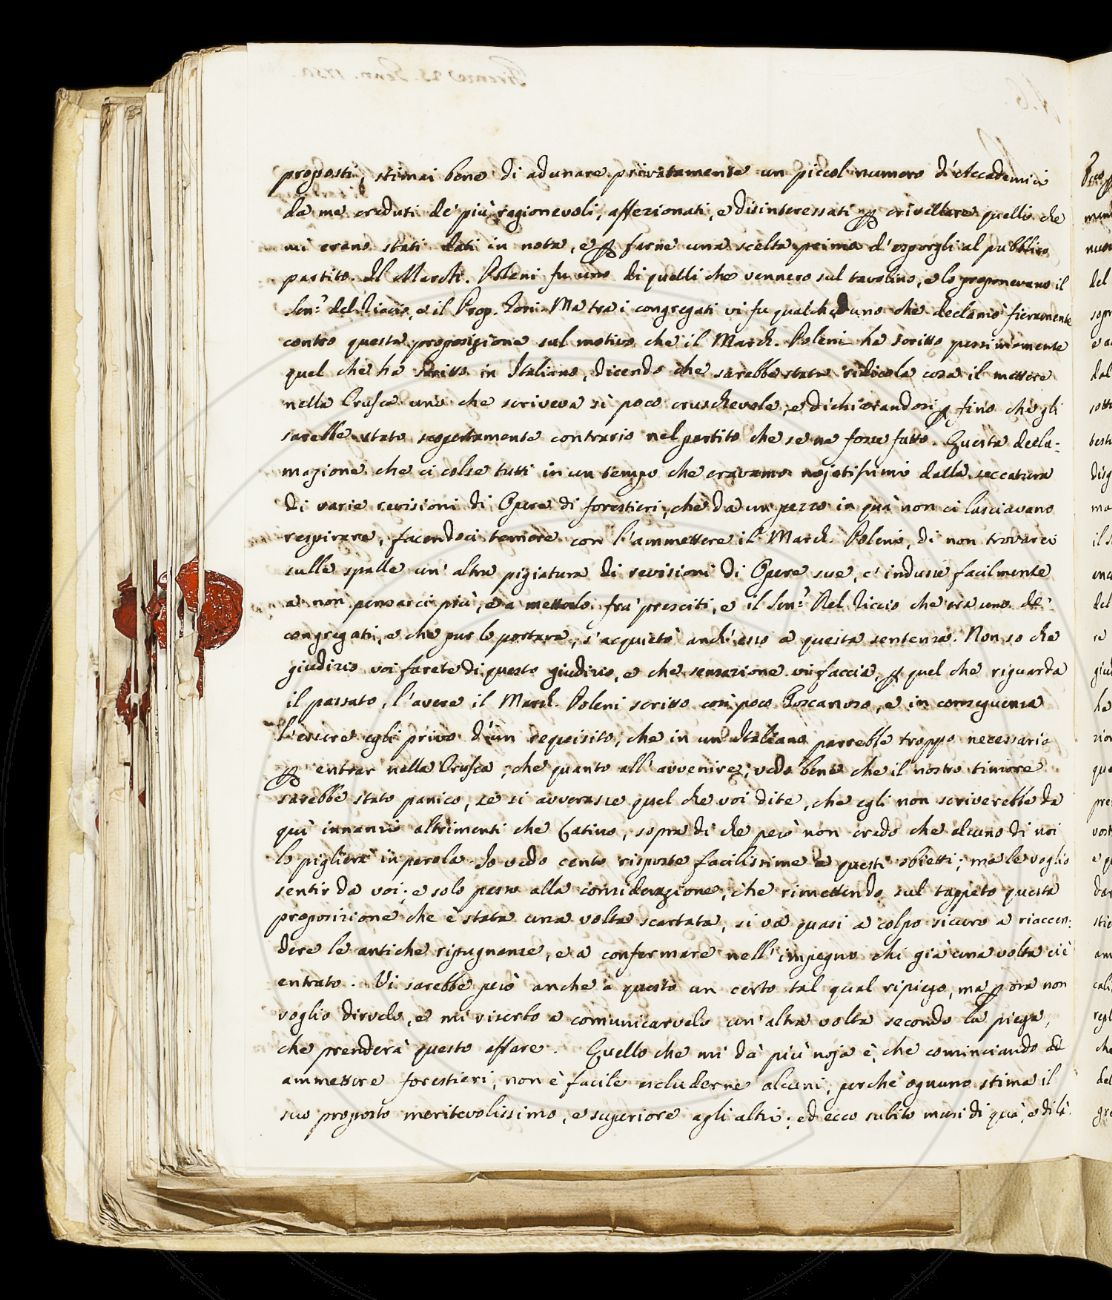 proposti, stimai bene di adunare privatamente un piccol numero d'Accademici
da me creduti de' più ragionevoli, affezionati, e disinteressati p crivellare quelli che
mi erano stati dati in nota, e p farne una scelta prima d'esporgli al pubblico
partito. Il March. Poleni fu uno di quelli che vennero sul tavolino, e lo proponevano il
Sen. del Riccio, e il Prop. Gori. Ma tra i congregati vi fu qualcheduno che declamò fieramente
contro questa proposizione sul motivo che il March. Poleni ha scritto pessimamente
quel che ha scritto in Italiano, dicendo che sarebbe stata ridicola cosa il mettere
nella Crusca uno che scriveva sì poco cruschevole, e dichiarandosi p fino che gli
sarebbe stato scopertamente contrario nel partito che se ne fosse fatto. Questa decla-
mazione che ci colse tutti in un tempo che eravamo nojatissimi dalla seccatura
di varie revisioni di Opere di forestieri, che da un pezzo in quà non ci lasciavano
respirare, facendoci temere con l'ammettere il March. Poleni, di non trovarci
sulle spalle un' altra pigiatura di revisioni di Opere sue, c' indusse facilmente
a non pensarci più, e a metterlo fra' presciti, e il Sen. Del Riccio che era uno de'
congregati, e che pur lo portava, s'acquietò anch'esso a questa sentenza. Non so che
giudizio voi farete di questo giudizio, e che sensazione vi faccia, p quel che riguarda
il passato, l'avere il March. Poleni scritto con poco Toscanesmo, e in conseguenza
l'essere egli privo d'un requisito, che in un Italiano parrebbe troppo necessario
p entrar nella Crusca; che quanto all' avvenire, vedo bene che il nostro timore
sarebbe stato panico, se si avverasse quel che voi dite, che egli non scriverebbe da
quì innanzi altrimenti che Latino, sopra di che però non credo che alcuno di voi
lo piglierà in parola. Io vedo cento risposte facilissime a questi obietti; ma le voglio
sentir da voi; e solo pesto alla considerazione, che rimettendo sul tappeto questa
proposizione che è stata una volta scartata, si va quasi a colpo sicuro a riaccen-
dere le antiche ripugnanze, e a confermare nell' impegno chi già una volta ci è
entrato. Vi sarebbe però anche a questo un certo tal qual ripiego, ma p ora non
voglio dirvelo, e mi riserbo a comunicarvelo un' altra volta secondo la piega,
che prenderà questo affare. Quello che mi dà più noja è, che cominciando ad
ammettere forestieri, non è facile escluderne alcuni, perchè ognuno stima il
suo proposto meritevolissimo, e superiore agli altri; ed ecco subito musi di quà, e di là